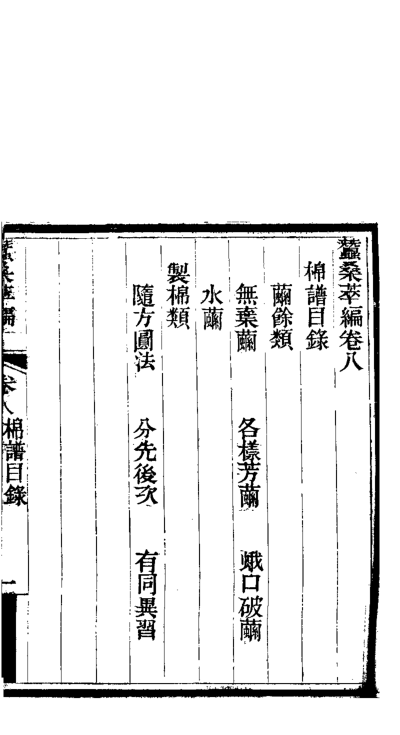 蠶桑萃編卷八
棉譜目錄
繭餘類
無棄繭 各樣芳繭 蛾口破繭
水繭
製棉類
隨方圓法 分先後次 有同異習
蠶桑萃編
卷八棉譜目錄
一